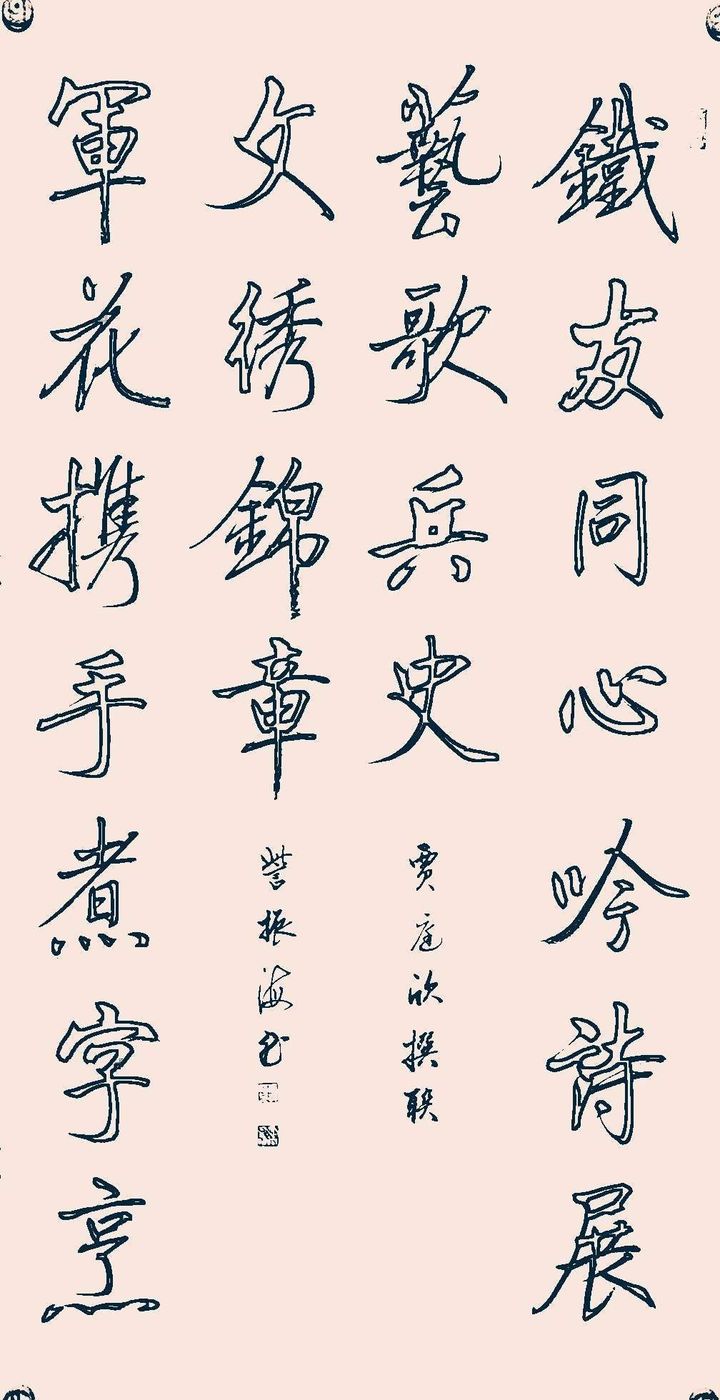 鐵友同心吟詩展
藝歌兵史
賈庭欣撰联
文绣錦章
訾振海书
軍花携手煮字烹